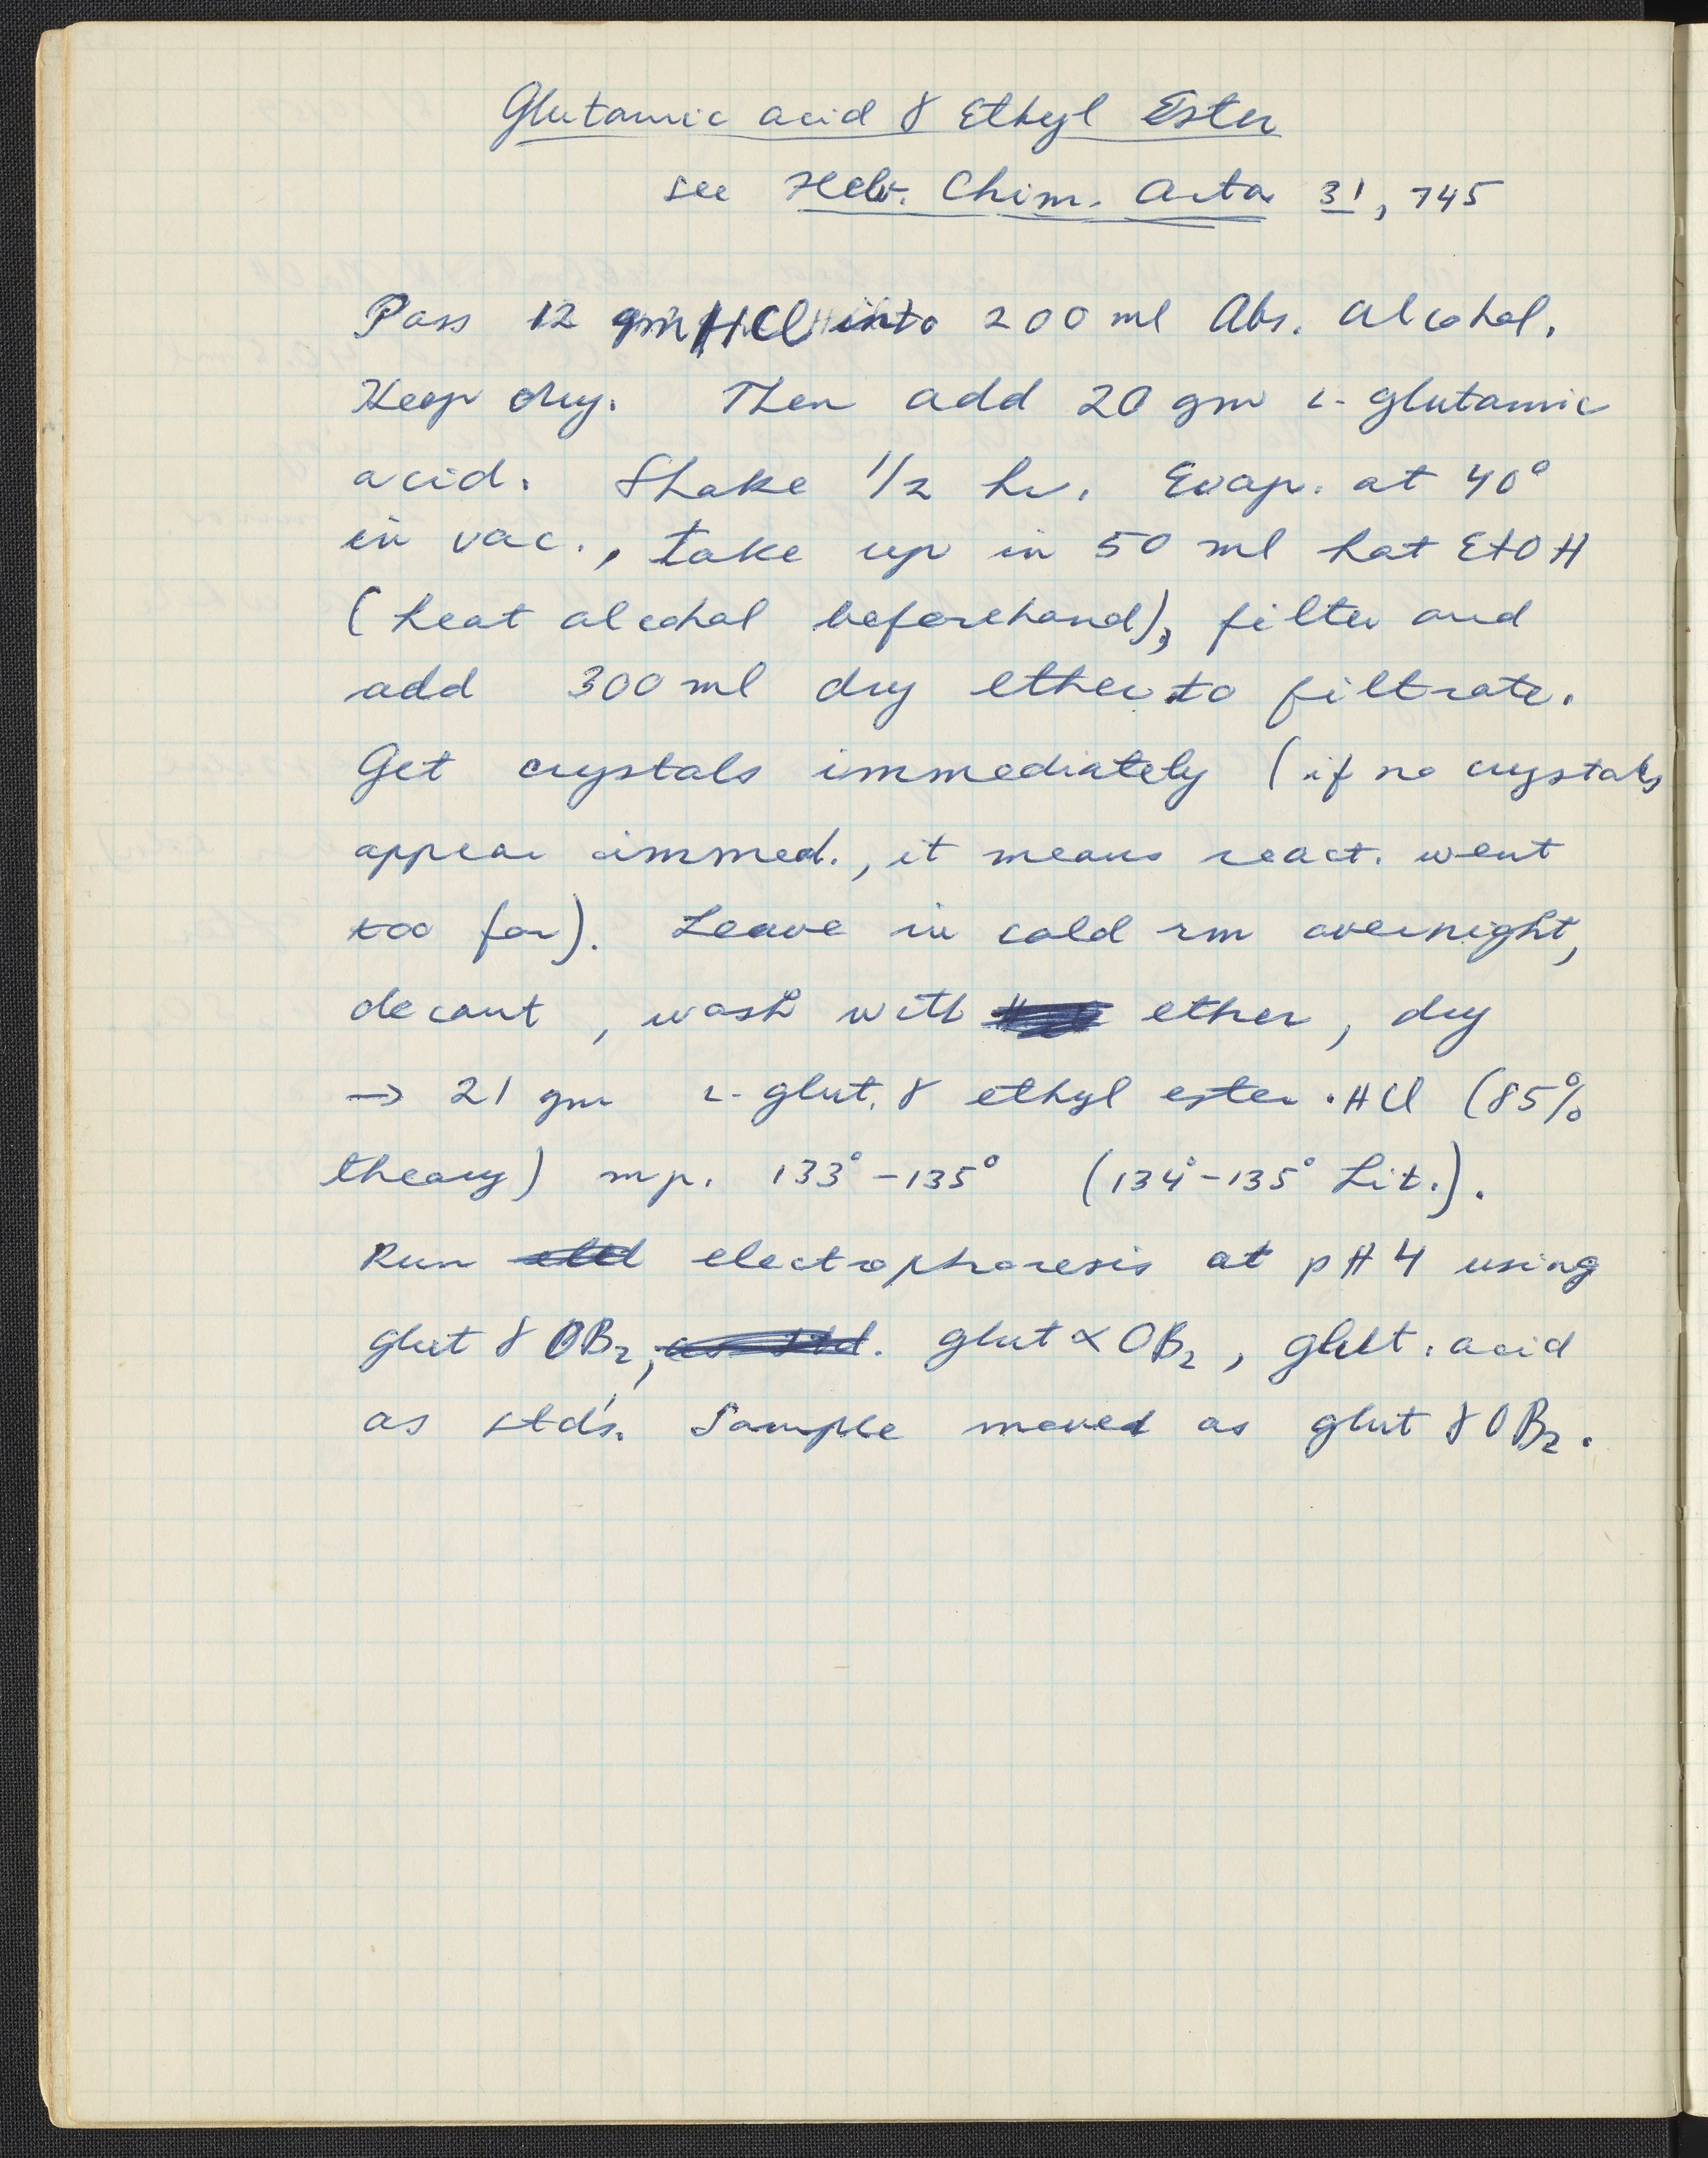 Glutamic acid γ Ethyl Ester
see Helv. Chim. Acta 31, 745
Pass 12 gm HCl into 200 ml Abs. alcohol.
Keep dry. Then add 20 gm L-glutamic
acid. Shake 1/2 hr. Evap. at 40°
in vac., take up in 50 ml hot EtOH
(heat alcohol beforehand), filter and
add 300 ml dry ether to filtrate.
Get crystals immediately (if no crystals
appear immed., it means react. went
too far). Leave in cold rm overnight,
decant, wash with ether, dry
→ 21 gm L-glut. γ ethyl ester·HCl (85%
theory) mp. 133°-135° (134°-135° Lit.).
Run electrophoresis at pH 4 using
glut γ OBz, glut α OBz, glut. acid
as std's. Sample moved as glut γ OBz.